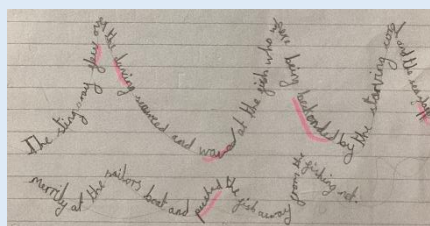 The stingray flew over the diving seaweed and waved at the fish who were being befonded by the starving cod and the seagull
merrily at the sailors boat and pushed the fish away from the fishing net.